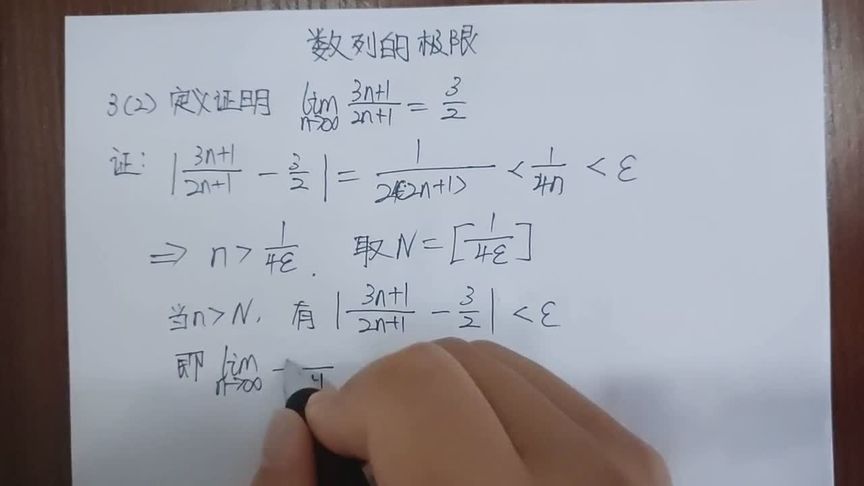 数列的极限
3(2) 定义证明 lim n→∞ 3n+1/2n+1 = 3/2
证: | 3n+1/2n+1 - 3/2 | = 1/2(2n+1) < 1/4n < ε
⇒ n > 1/4ε. 取N = [1/4ε]
当n>N, 有 | 3n+1/2n+1 - 3/2 | < ε
即 lim n→∞